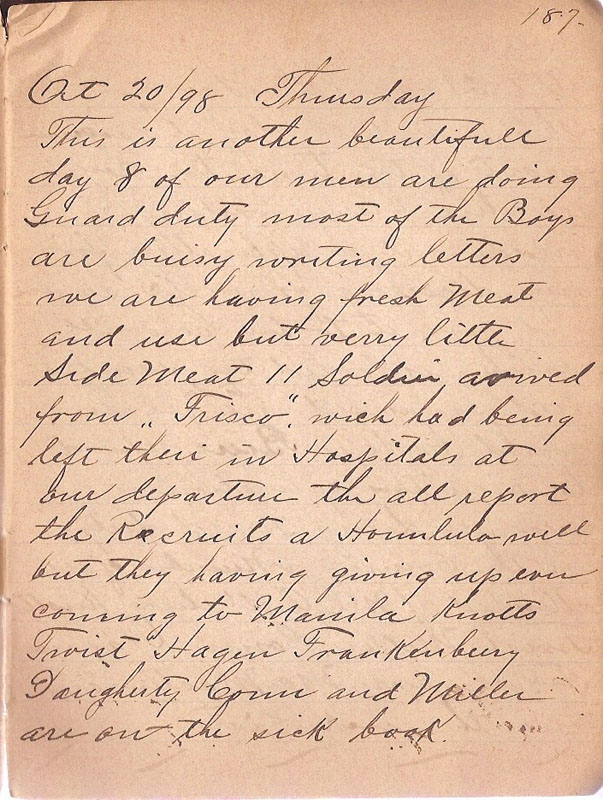 187-
Oct 20/98 Thursday
This is another beautifull
day 8 of our men are doing
Guard duty most of the Boys
are buisy writing letters
we are having fresh Meat
and use but verry little
Side Meat 11 Soldier arrived
from „Frisco". wich had being
left their in Hospitals at
our departure the all report
the Recruits a Honulula well
but they having giving up ever
coming to Manila Knotts
Twist Hagen Frankenbery
Daugherty Conn and Miller
are on the sick book.